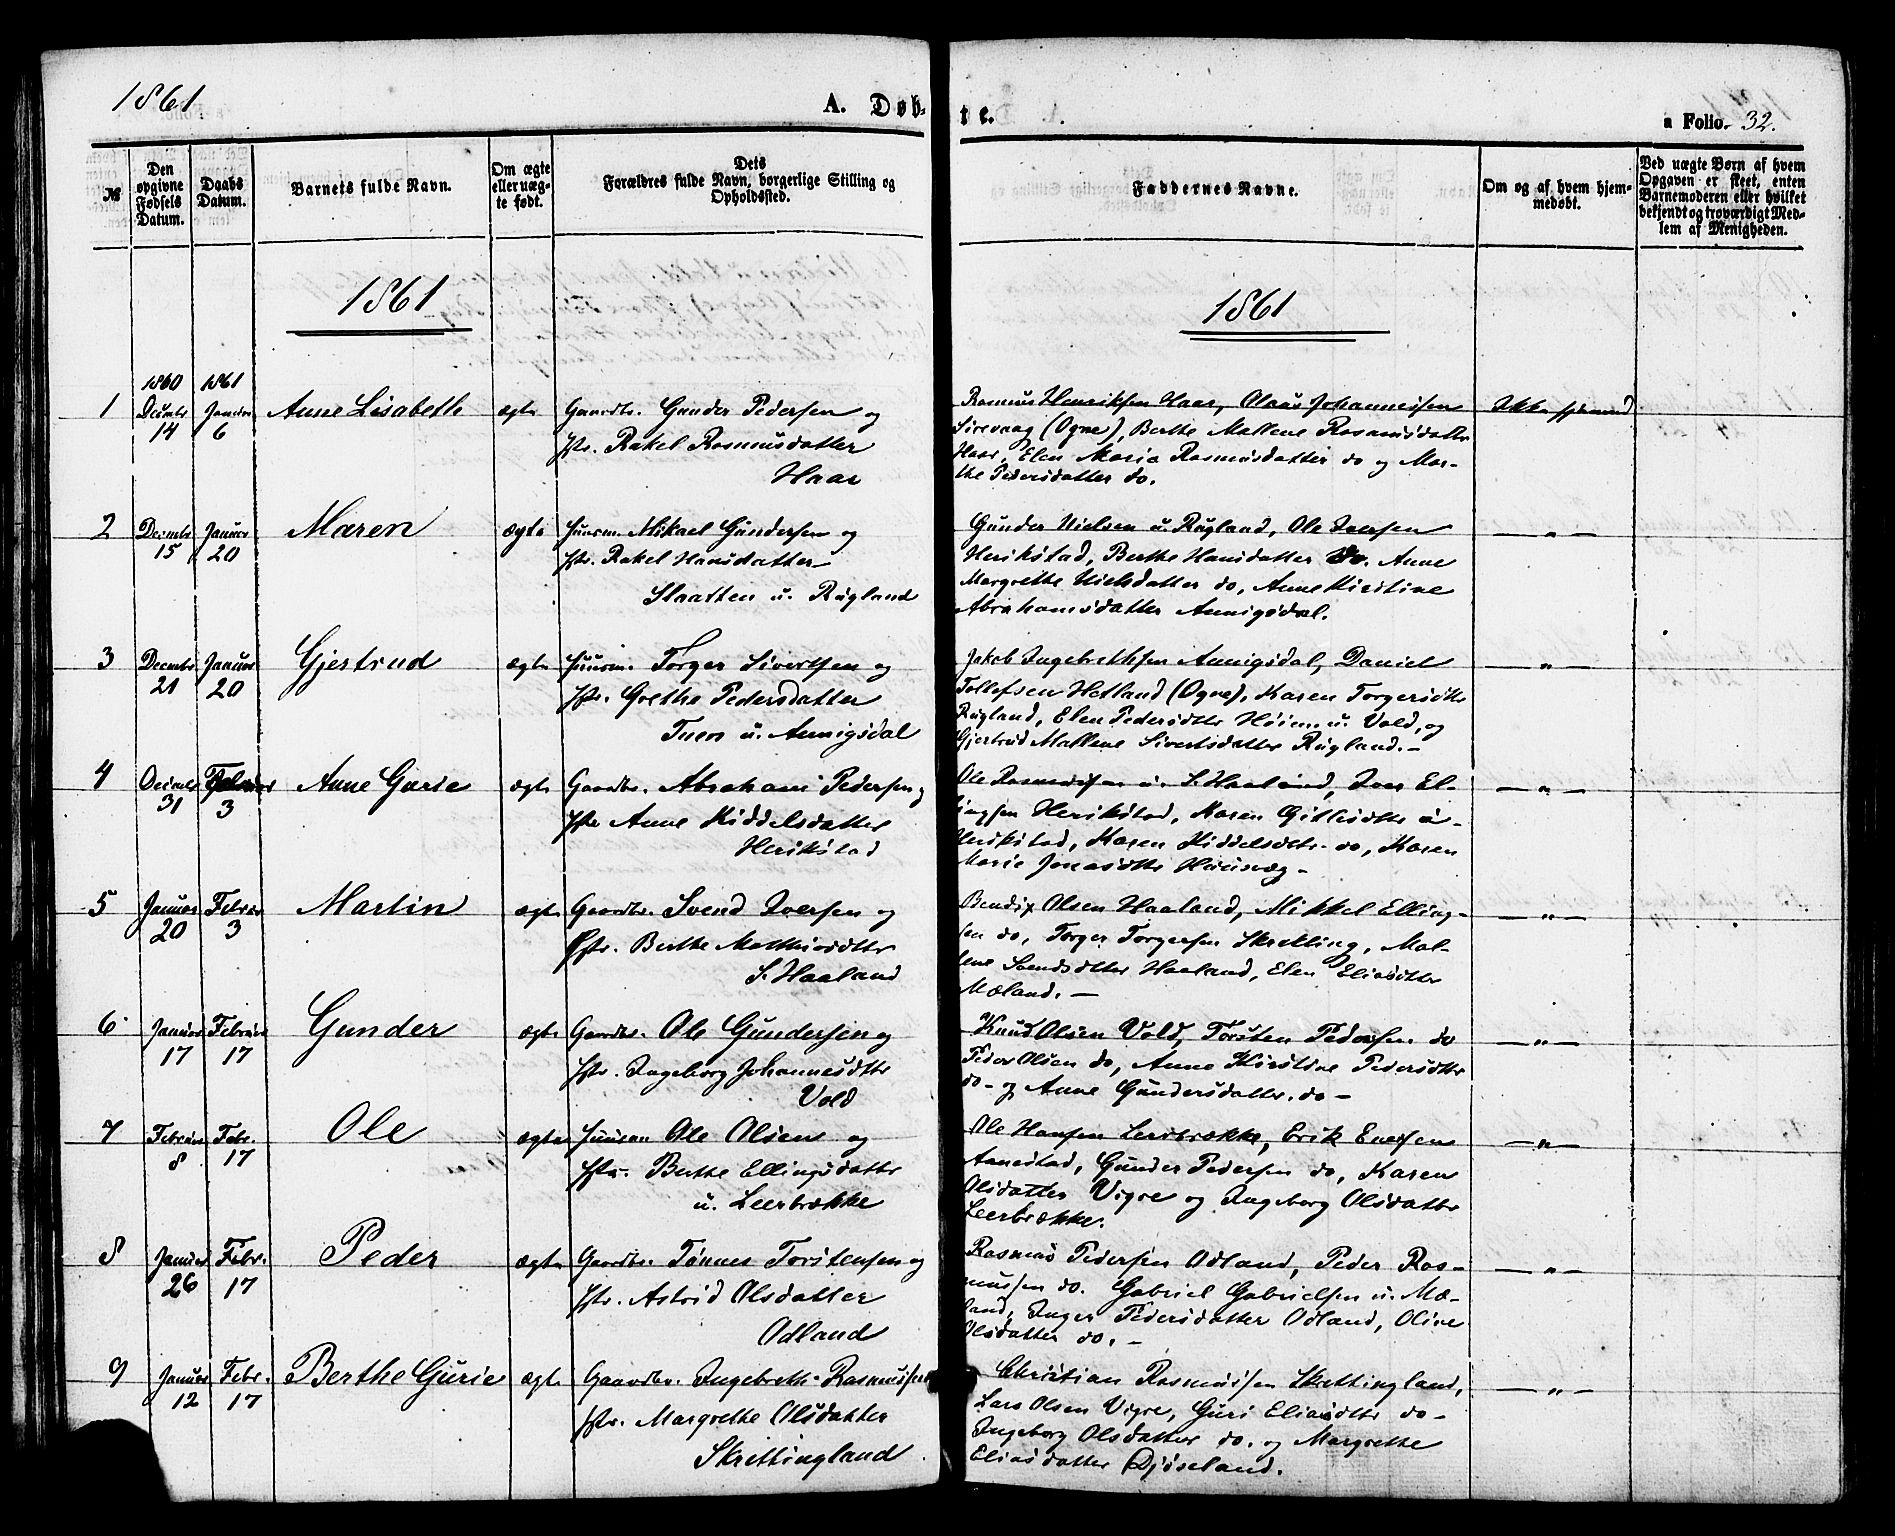 1861
A. Døb-
te.
a Folio. 32.
№
Den opgivne Fødsels Datum.
Daabs Datum.
Barnets fulde Navn.
Om ægte eller uæg-te født.
Dets Forældres fulde Navn, borgerlige Stilling og Opholdssted.
Faddernes Navne.
Om og af hvem hjem-medøbt.
Ved uægte Børn af hvem Opgaven er skeet, enten Barnemoderen eller hvilket bekjendt og troværdigt Med-lem af Menigheden.
1861
1861
1860 1861
1 Decmbr 14 Januar 6 Anne Lisabeth ægte Gaardbr. Gunder Pedersen og
Hstr. Rakel Rasmusdatter
Haar
Rasmus Henriksen Haar, Olaus Johannessen
Sirevaag (Ogne), Berthe Mallene Rasmusdatter
Haar, Elen Maria Rasmusdatter do og Mar-
the Pedersdatter do.
Ikke hjemmed
2 Decmbr 15 Januar 20 Maren ægte Huusm. Mikael Gundersen og
Hstr. Rakel Hansdatter
Slaatten u. Rugland
Gunder Nielsen u. Rugland, Ole Iversen
Herikstad, Berthe Hansdatter do. Anne
Margrethe Nielsdatter do, Anne Kirstine
Abrahamsdatter Aunigsdal.
— " —
3 Decmbr 21 Januar 20 Gjertrud ægte Huusm. Torger Sivertsen og
Hstr. Grethe Pedersdatter
Tuen u. Aunigsdal
Jakob Ingebrethsen Aunigsdal, Daniel
Tollefsen Hetland (Ogne), Karen Torgersdtr
Rugland, Elen Pedersdtr Høien u. Vold, og
Gjertrud Mallene Sivertsdatter Rugland. —
— " —
4 Decmbr 31 Februar 3 Anne Gurie ægte Gaardbr. Abraham Pedersen og
Hstr Anne Kiddelsdatter
Herikstad
Ole Rasmussen u. S. Haaland, Iver El-
lingsen Herikstad, Karen Gitlesdtr u-
Herikstad, Karen Kiddelsdtr. do, Karen
Marie Jonasdtr
— " —
5 Januar 20 Februar 3 Martin ægte Gaardbr. Svend Iversen og
Hstr. Berthe Mathiasdtr
S. Haaland
Bendix Olsen Haaland, Mikkel Elling-
sen do, Torger Torgersen Skretting, Mal-
lene Svendsdtter Haaland, Elen Eliasdtr
Mæland. —
— " —
6 Januar 17 Februar 17 Gunder ægte Gaardbr. Ole Gundersen og
Hstr. Ingeborg Johannesdtr
Vold
Knud Olsen Vold, Torsten Pedersen do
Peder Olsen do, Anne Kirstine Pedersdtr
do- og Anne Gundersdatter. do —
— " —
7 Februar 8 Febr. 17 Ole ægte Huusm Ole Olsen og
Hstr. Berthe Ellingsdatter
u. Leerbrække
Ole Hansen Leerbrække, Erik Evertsen
Aanestad, Gunder Pedersen do, Karen
Olsdatter Vigre og Ingeborg Olsdatter
Leerbrække.
— " —
8 Januar 26 Febr. 17 Peder ægte Gaardbr. Tønnes Torstensen og
Hstr. Astrid Olsdatter
Odland
Rasmus Pedersen Odland, Peder Ras-
mussen do. Gabriel Gabrielsen u. Mæ-
land, Inger Pedersdatter Odland, Oline
Olsdatter do. —
— " —
9 Januar 12 Febr. 17 Berthe Gurie ægte Gaardbr. Ingebreth Rasmussen
Hstr. Margrethe Olsdatter
Skrettingland
Christian Rasmussen Skrettingland,
Lars Olsen Vigre, Guri Eliasdtr do-
Ingeborg Olsdatter do. og Margrethe
Eliasdatter Djøseland.
— " —